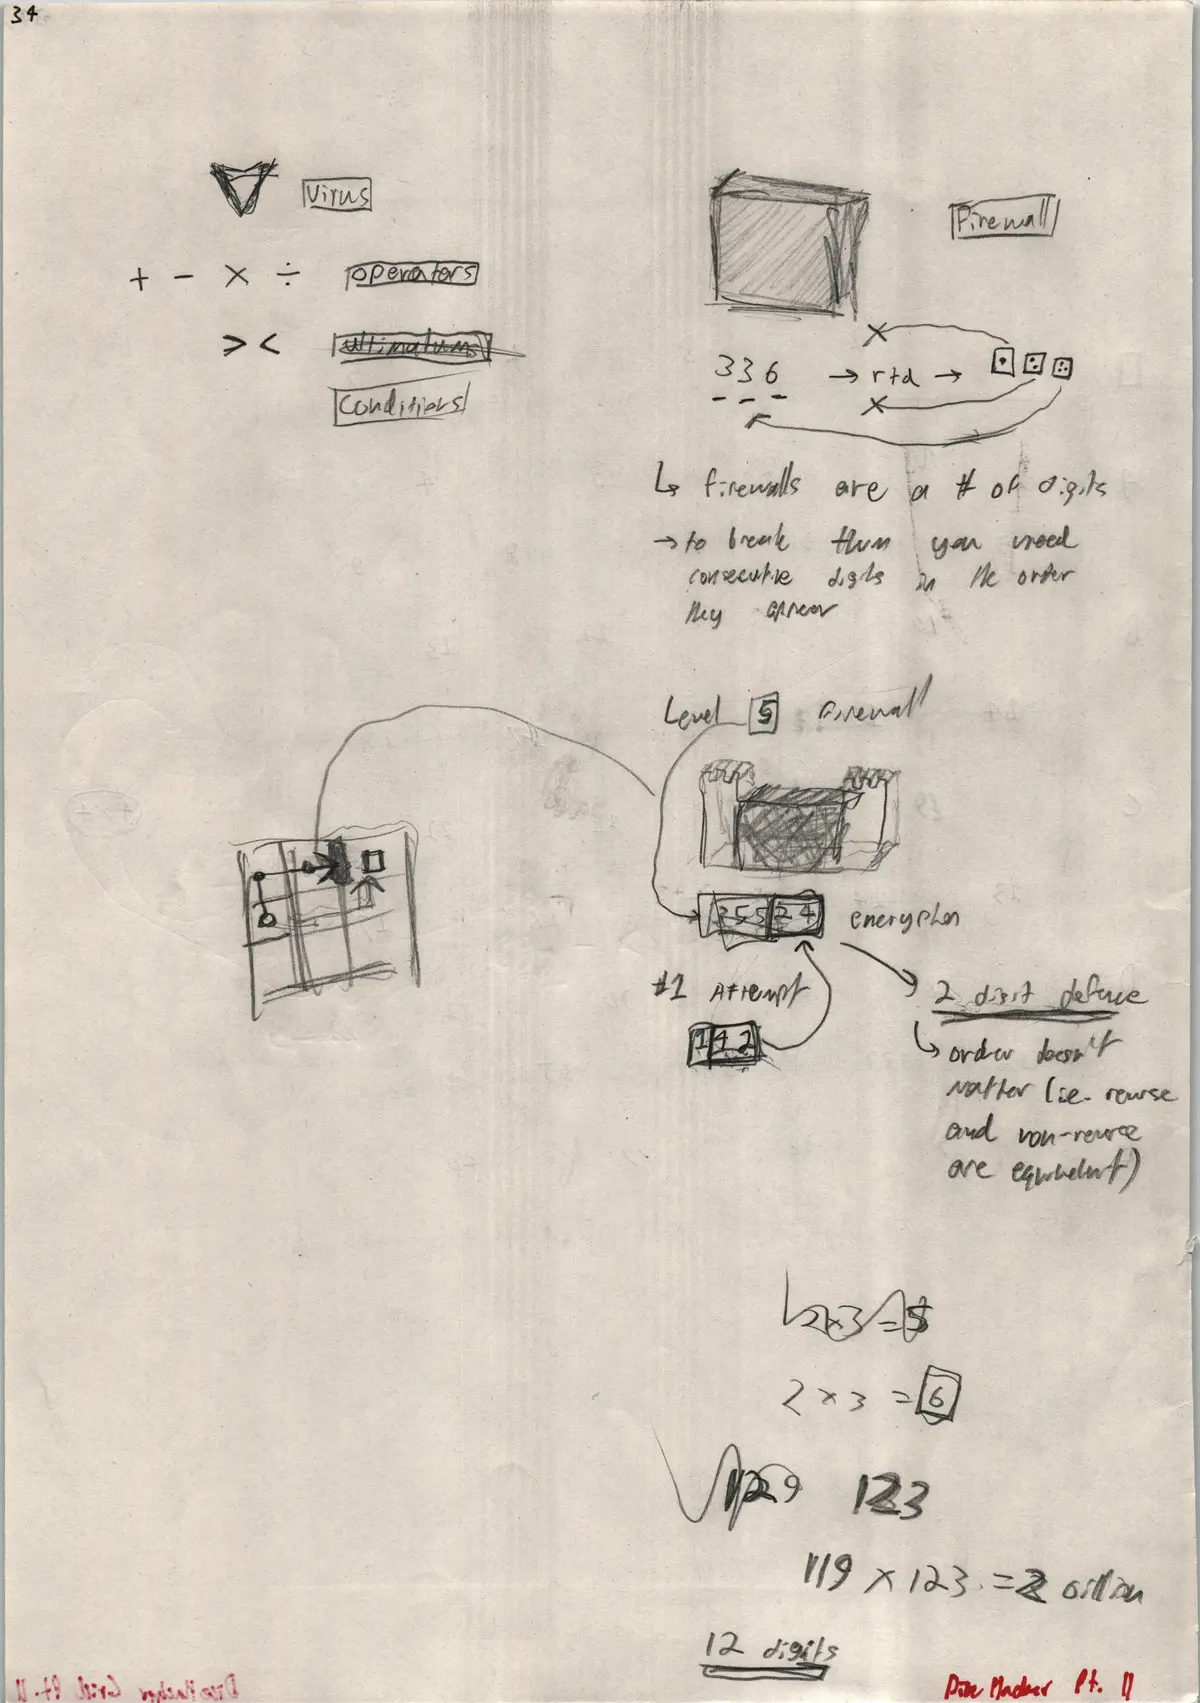 34
Virus
+ - × ÷ operators
> < ultimatums
Conditions
Firewall
336 → rtd →
↳ firewalls are a # of digits
→ to break them you need
consecutive digits in the order
they appear
Level 5 Firewall
35524 encryption
#1 Attempt
142
2 digit defence
↳ order doesn't
matter (ie. reverse
and non-reverse
are equivalent)
2×3 = 5
2 × 3 = 6
129 123
119 × 123 = 2
12 digits
Dice Hacker Pt. II